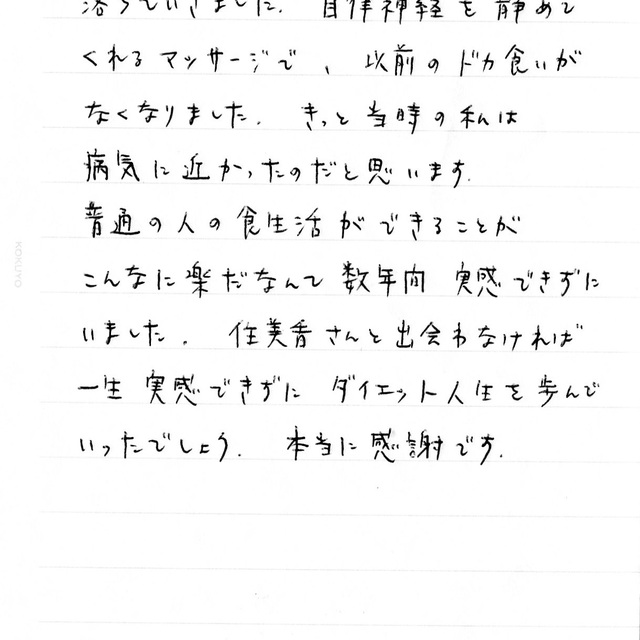 落ちていきました。自律神経を静めて
くれるマッサージで、以前のドカ食いが
なくなりました。きっと当時の私は
病気に近かったのだと思います。
普通の人の食生活ができることが
こんなに楽だなんて数年間 実感できずに
いました。佳美香さんと出会わなければ
一生 実感できずに ダイエット人生を歩んで
いったでしょう。本当に感謝です。
KOKUYO